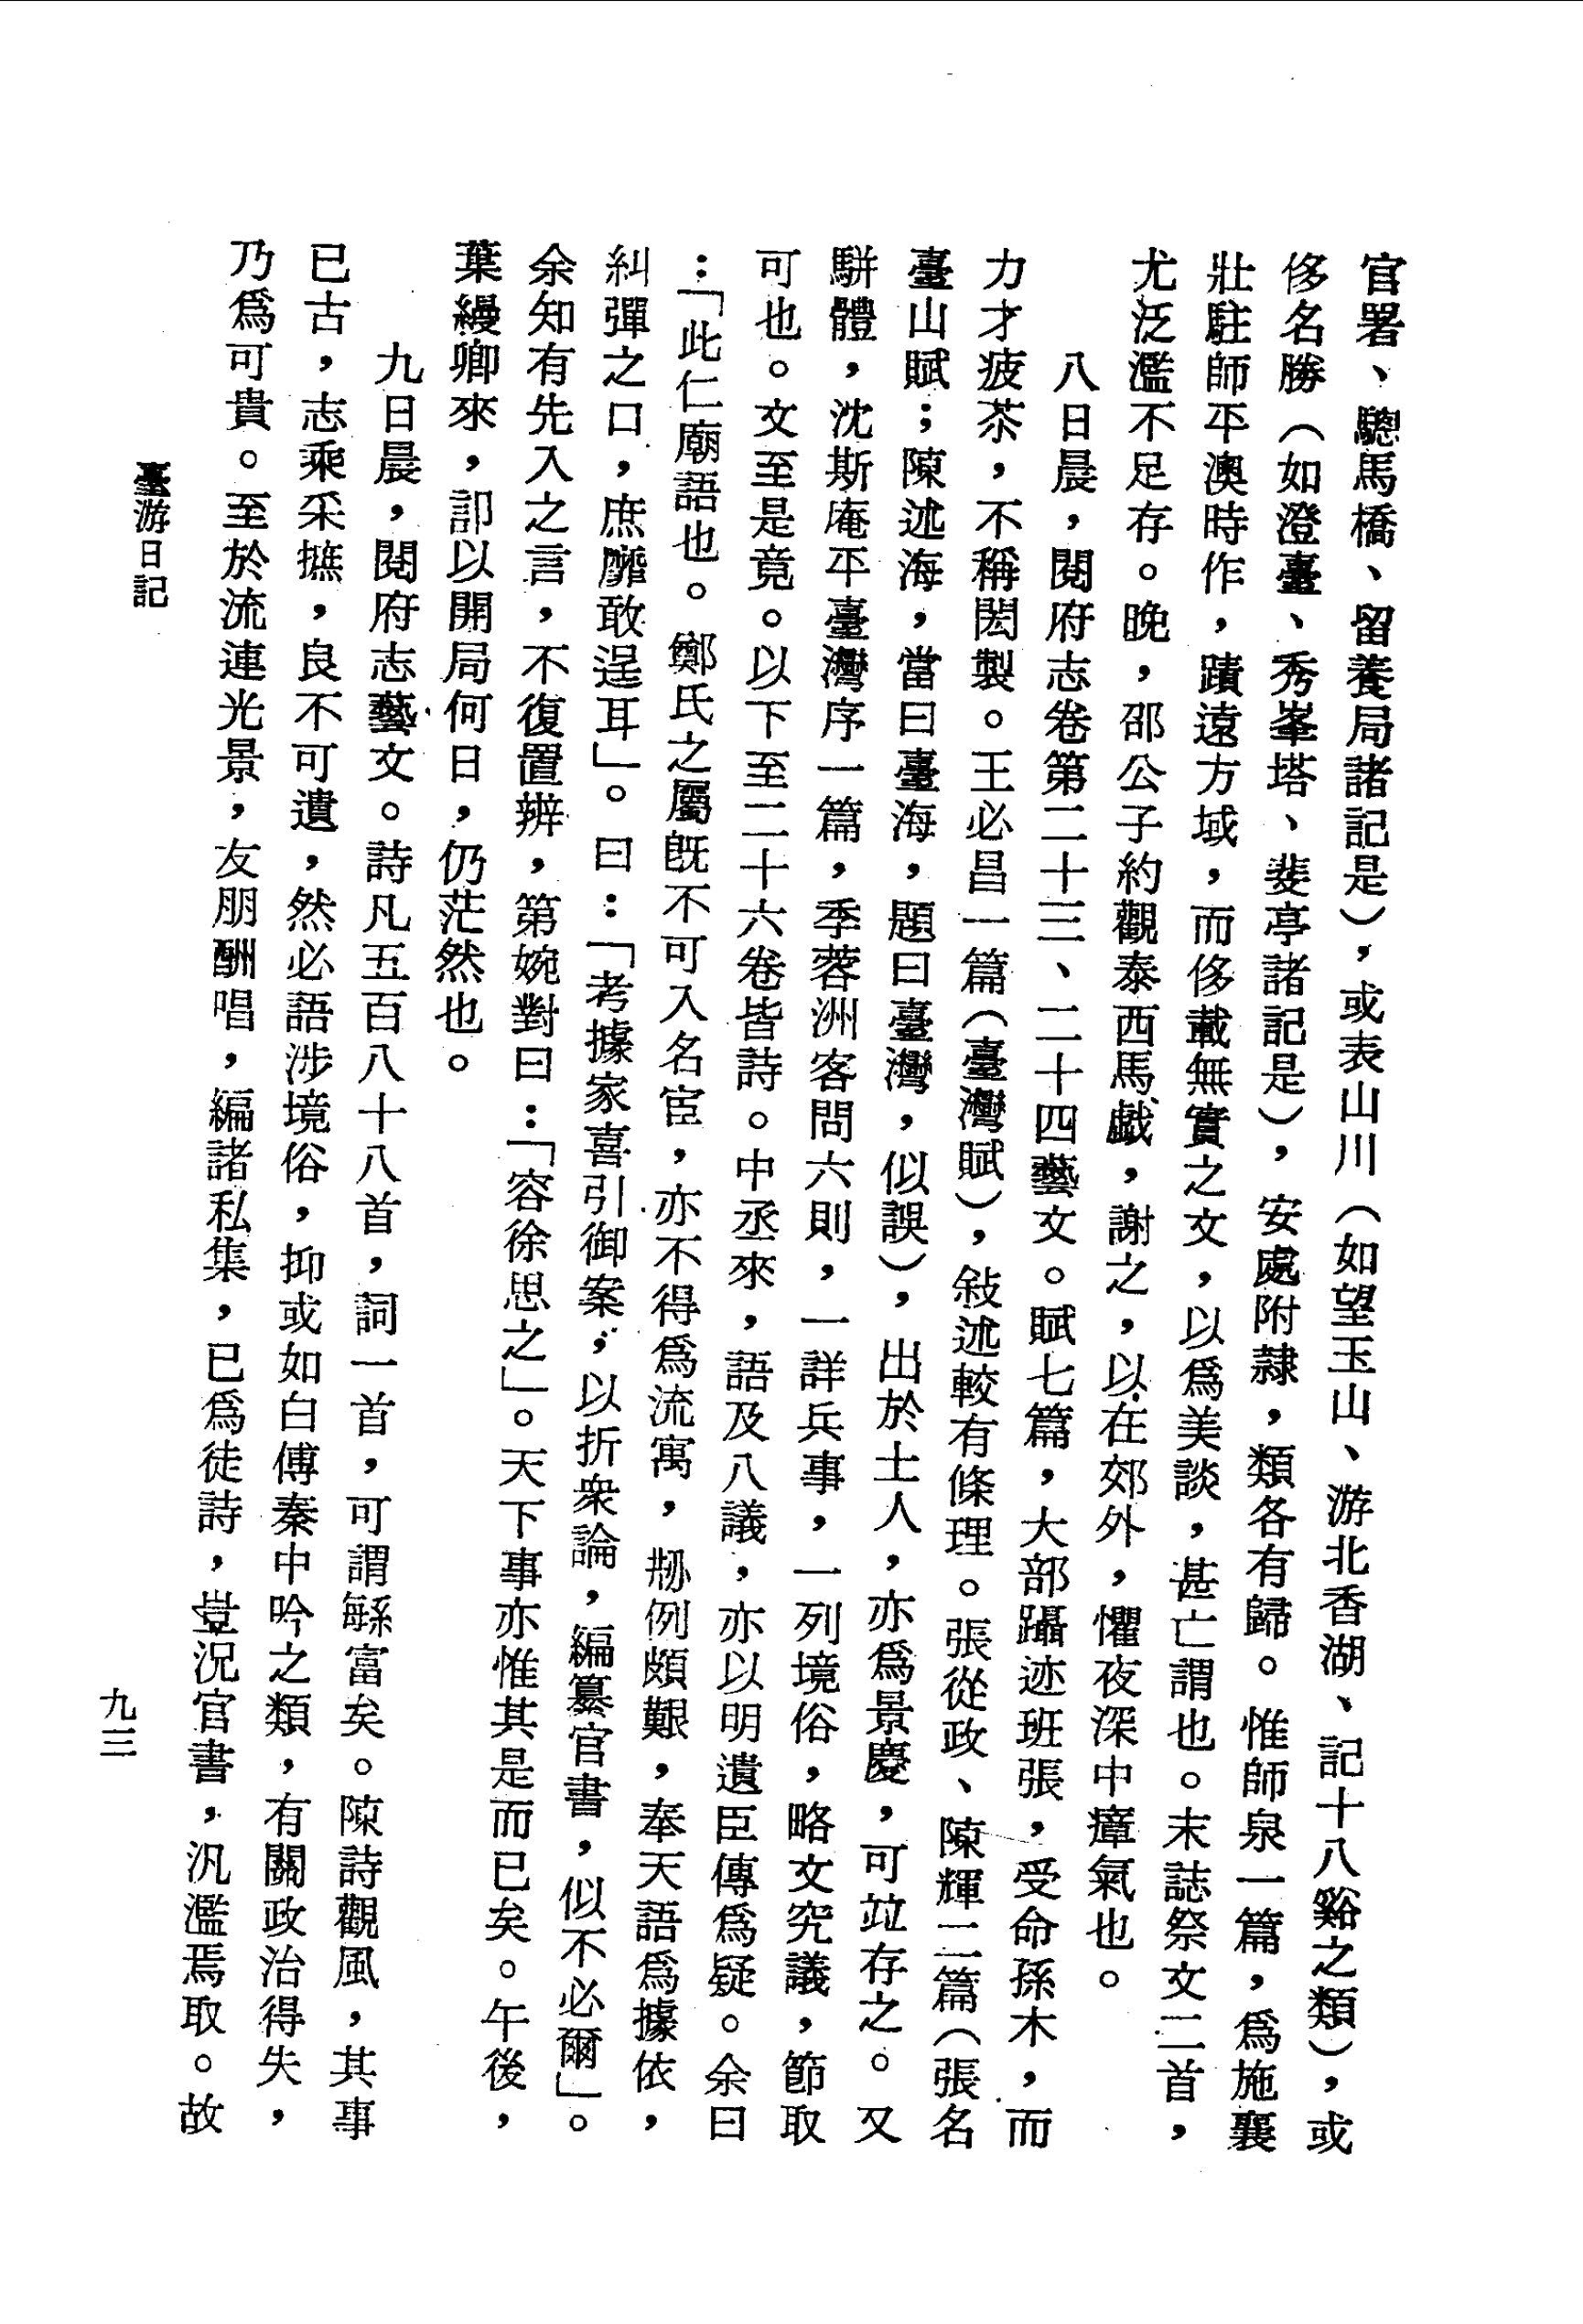 官署、驄馬橋、留養局諸記是），或表山川（如望玉山、游北香湖、記十八谿之類），或
侈名勝（如澄臺、秀峯塔、斐亭諸記是），安處附隷，類各有歸。惟師泉一篇，爲施襄
壯駐師平澳時作，蹟遠方域，而侈載無實之文，以爲美談，甚亡謂也。末誌祭文二首，
尤泛濫不足存。晚，邵公子約觀泰西馬戯，謝之，以在郊外，懼夜深中瘴氣也。
八日晨，閱府志卷第二十三、二十四藝文。賦七篇，大部躡迹班張，受命孫木，而
力才疲苶，不稱閎製。王必昌一篇（臺灣賦），敍述較有條理。張從政、陳輝二篇（張名
臺山賦；陳述海，當曰臺海，題曰臺灣，似誤），出於土人，亦爲景慶，可竝存之。又
駢體，沈斯庵平臺灣序一篇，季蓉洲客問六則，一詳兵事，一列境俗，略文究議，節取
可也。文至是竟。以下至二十六卷皆詩。中丞來，語及八議，亦以明遺臣傳爲疑。余曰
：「此仁廟語也。鄭氏之屬旣不可入名宦，亦不得爲流寓，刱例頗艱，奉天語爲據依，
糾彈之口，庶靡敢逞耳」。曰：「考據家喜引御案，以折衆論，編纂官書，似不必爾」。
余知有先入之言，不復置辨，第婉對曰：「容徐思之」。天下事亦惟其是而已矣。午後，
葉縵卿來，卽以開局何日，仍茫然也。
九日晨，閱府志藝文。詩凡五百八十八首，詞一首，可謂緐富矣。陳詩觀風，其事
已古，志乘采摭，良不可遺，然必語涉境俗，抑或如白傅秦中吟之類，有關政治得失，
乃爲可貴。至於流連光景，友朋酬唱，編諸私集，已爲徒詩，豈況官書，汎濫焉取。故
臺游日記
九三